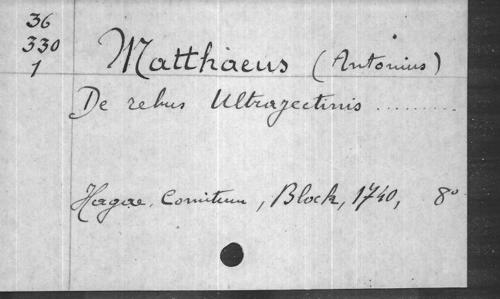 36
330
1
Matthaeus (Antonius)
De rebus Ultrajectinis ..........
Hagae, Comitum, Block, 1740, 8°